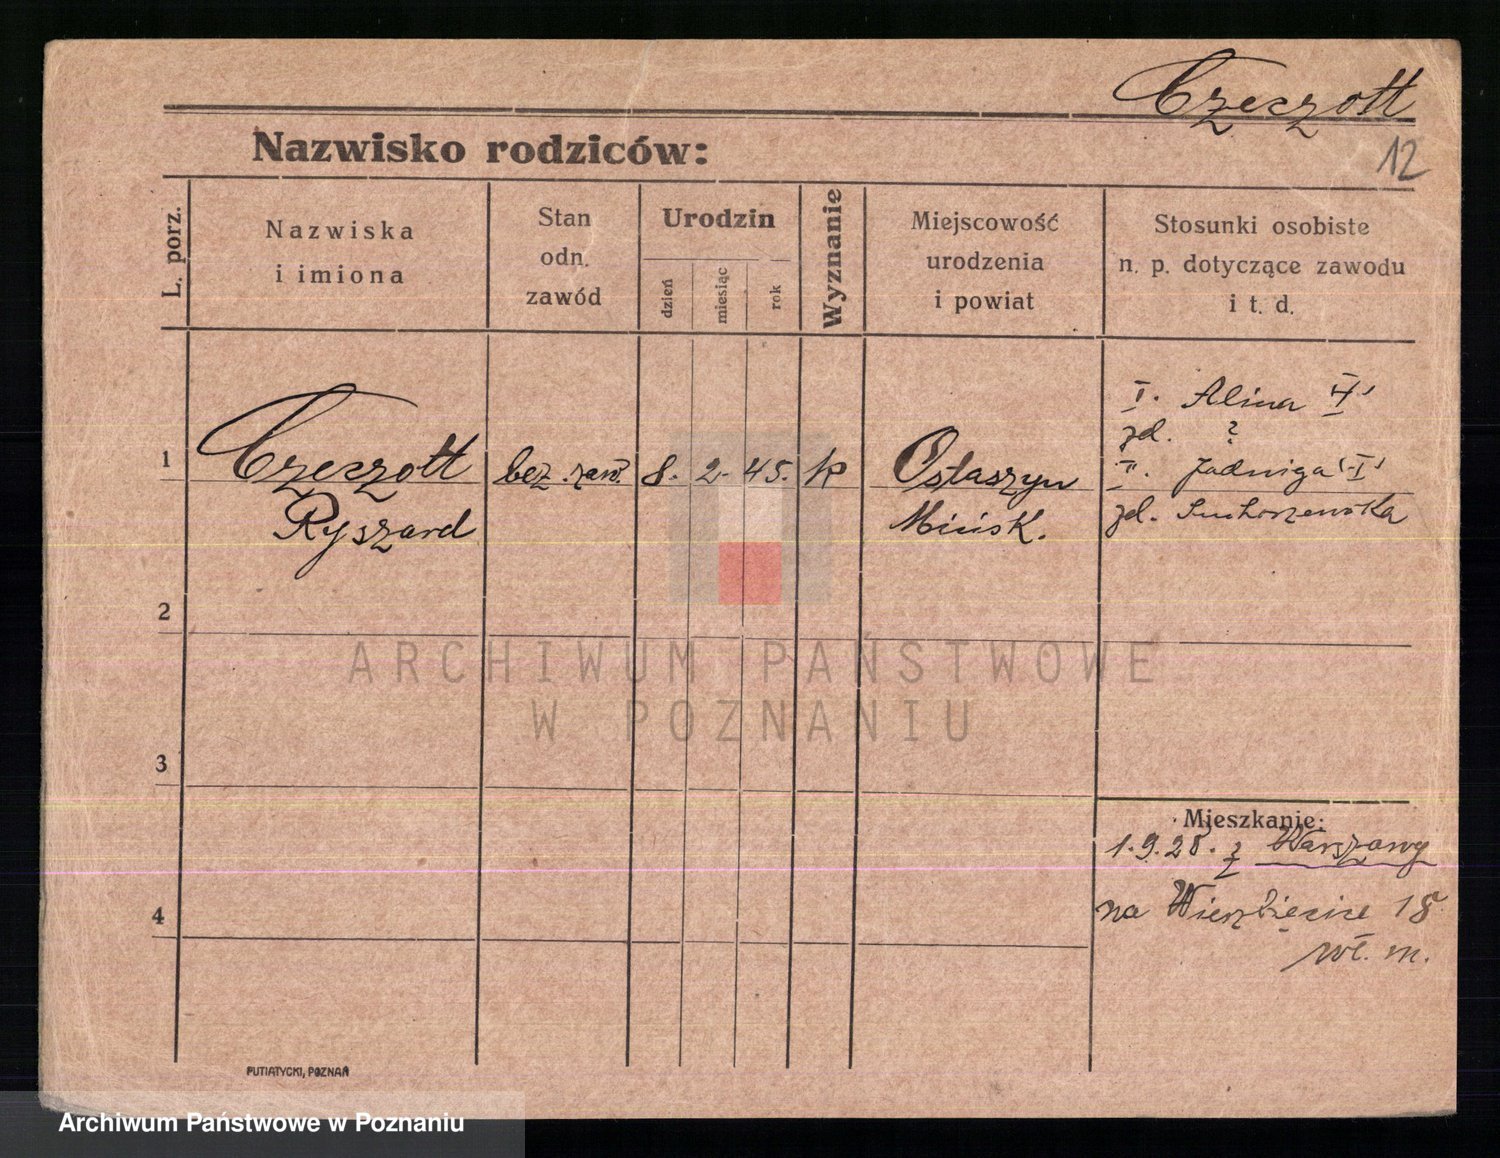 Czeczott
12
Nazwisko rodziców:
L. porz.
Nazwiska
i imiona
Stan
odn.
zawód
Urodzin
dzień
miesiąc
rok
Wyznanie
Miejscowość
urodzenia
i powiat
Stosunki osobiste
n. p. dotyczące zawodu
i t. d.
1
Czeczott
Ryszard
bez zaw.
8. 2. 45.
k
Ostaszyn
Mińsk.
I. Alina
zd. ?
II. Jadwiga
zd. Suchorzewska
2
3
4
Mieszkanie:
1.9.28. z Warszawy
na Wierzbięcice 18
wł. m.
PUTIATYCKI, POZNAŃ
ARCHIWUM PAŃSTWOWE
W POZNANIU
Archiwum Państwowe w Poznaniu